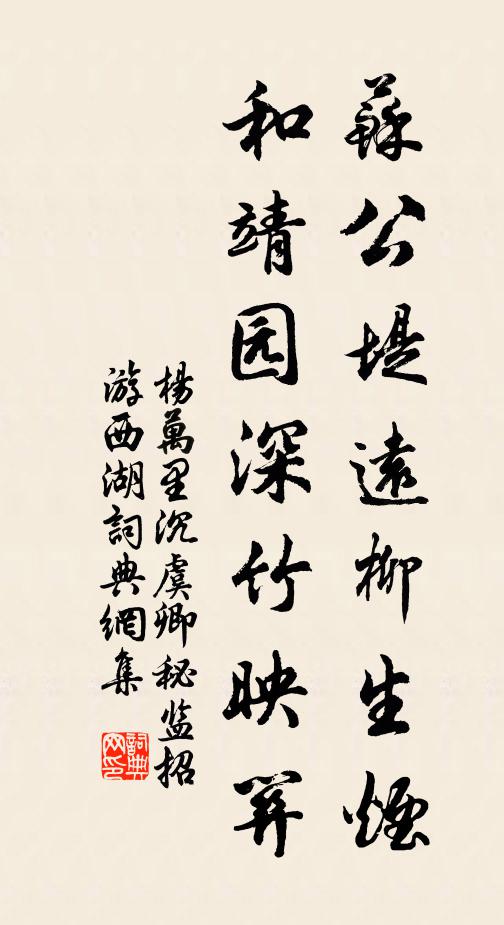 蘇公堤遠柳生煙
和靖园深竹映關
楊萬里沉虞卿秘监招
游西湖詞典網集
詞典
网印